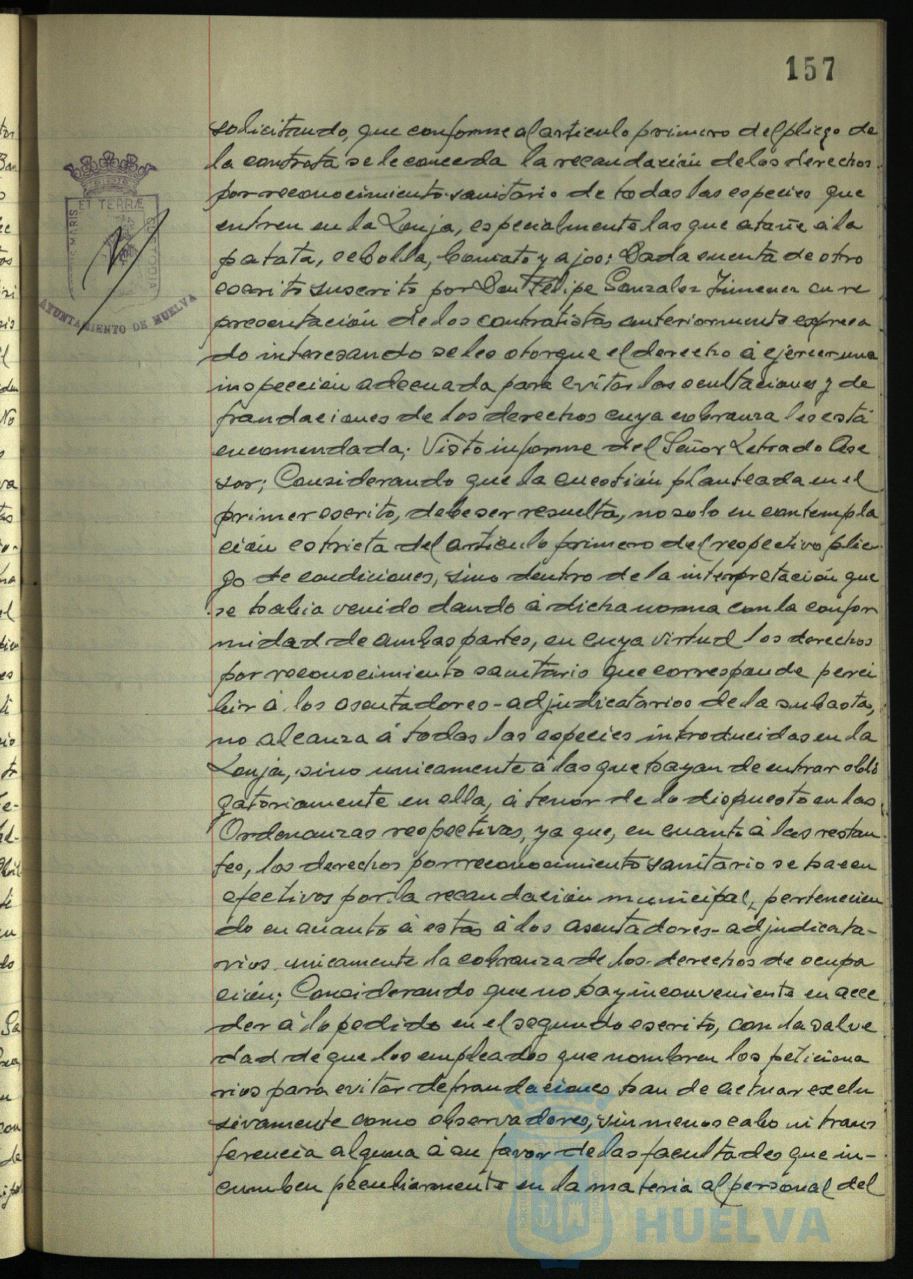 157
solicitando, que conforme al articulo primero del pliego de
la contrata se le conceda la recaudación de los derechos
por reconocimiento sanitario de todas las especies que
entren en la Lonja, especialmente las que atañe á la
patata, cebolla, boniato y ajos: Dada cuenta de otro
escrito suscrito por Don Felipe Gonzalez Jimenez en re
presentación de los contratistas anteriormente expresa
do interesando se les otorgue el derecho á ejercer una
inspección adecuada para evitar las ocultaciones y de
fraudaciones de los derechos cuya cobranza les está
encomendada; Visto informe del Señor Letrado Ase
sor; Considerando que la cuestión planteada en el
primer escrito, debe ser resuelta, no solo en contempla
ción estricta del articulo primero del respectivo plie-
go de condiciones, sino dentro de la interpretación que
se habia venido dando á dicha norma con la confor
midad de ambas partes, en cuya virtud los derechos
por reconocimiento sanitario que corresponde perci
bir á los asentadores-adjudicatarios de la subasta,
no alcanza á todas las especies introducidas en la
Lonja, sino unicamente á las que hayan de entrar obli
gatoriamente en ella, á tenor de lo dispuesto en las
Ordenanzas respectivas, ya que, en cuanto á las restan-
tes, los derechos por reconocimiento sanitario se hacen
efectivos por la recaudación municipal, pertenecien
do en cuanto á estas á los asentadores-adjudicata-
rios unicamente la cobranza de los derechos de ocupa
ción; Considerando que no hay inconveniente en acce
der á lo pedido en el segundo escrito, con la salve
dad de que los empleados que nombren los peticiona
rios para evitar defraudaciones han de actuar exclu
sivamente como observadores, sin menoscabo ni trans
ferencia alguna á su favor de las facultades que in-
cumben peculiarmente en la materia al personal del
ET TERRÆ
MARIS
CUSTODIA
AYUNTAMIENTO DE HUELVA
HUELVA